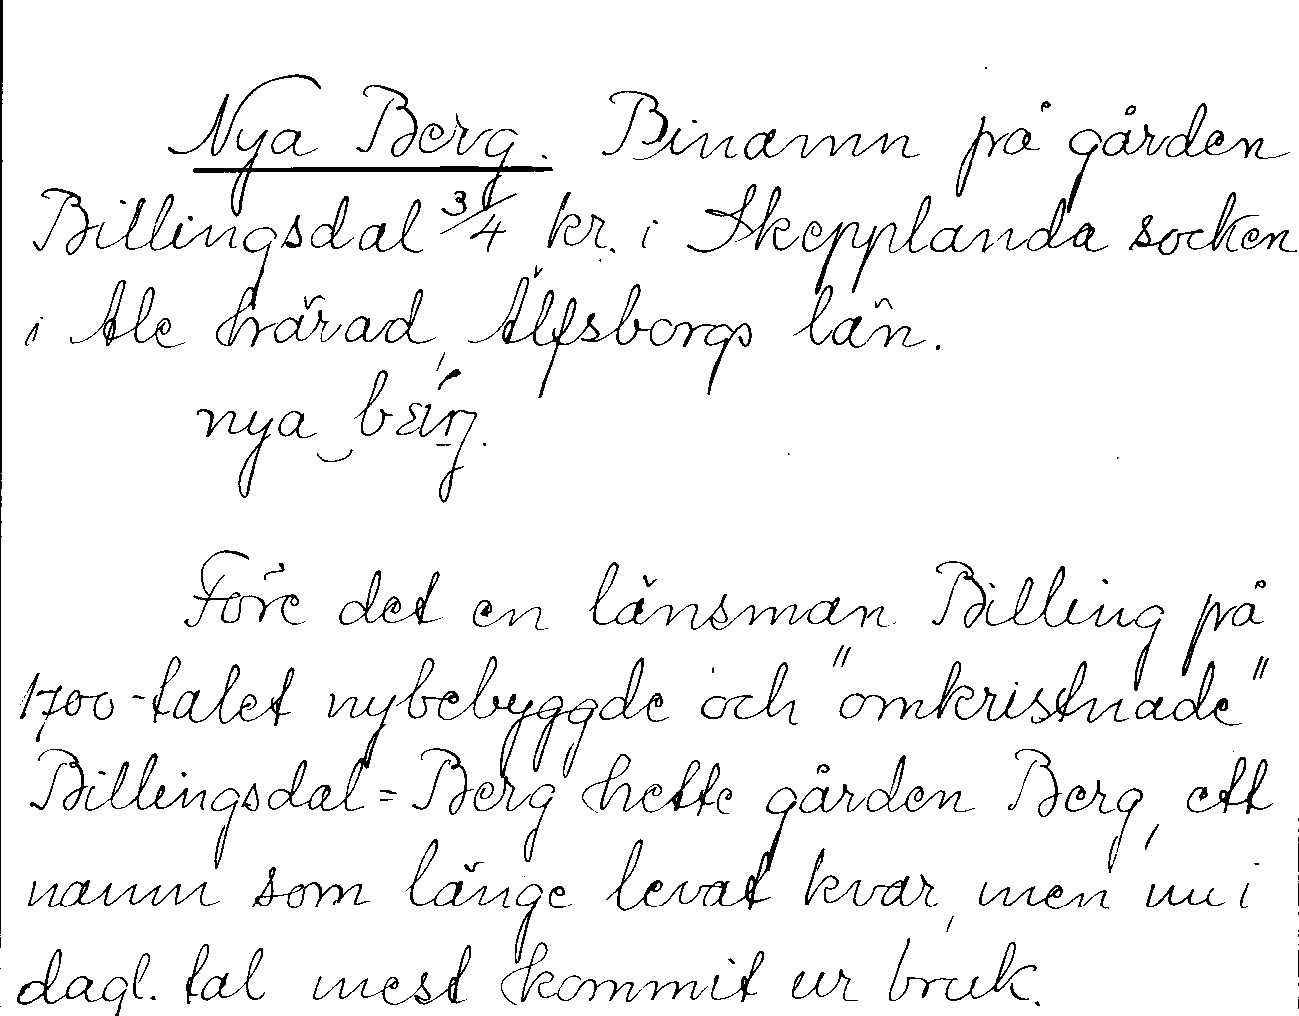 Nya Berg. Binamn på gården
Billingsdal 3/4 kr. i Skepplanda socken
i Ale härad, Älfsborgs län.
nya
Före det en länsman Billing på
1700-talet nybebyggde och "omkristnade"
Billingsdal=Berg hette gården Berg, ett
namn som länge levat kvar, men nu i
dagl. tal mest kommit ur bruk.